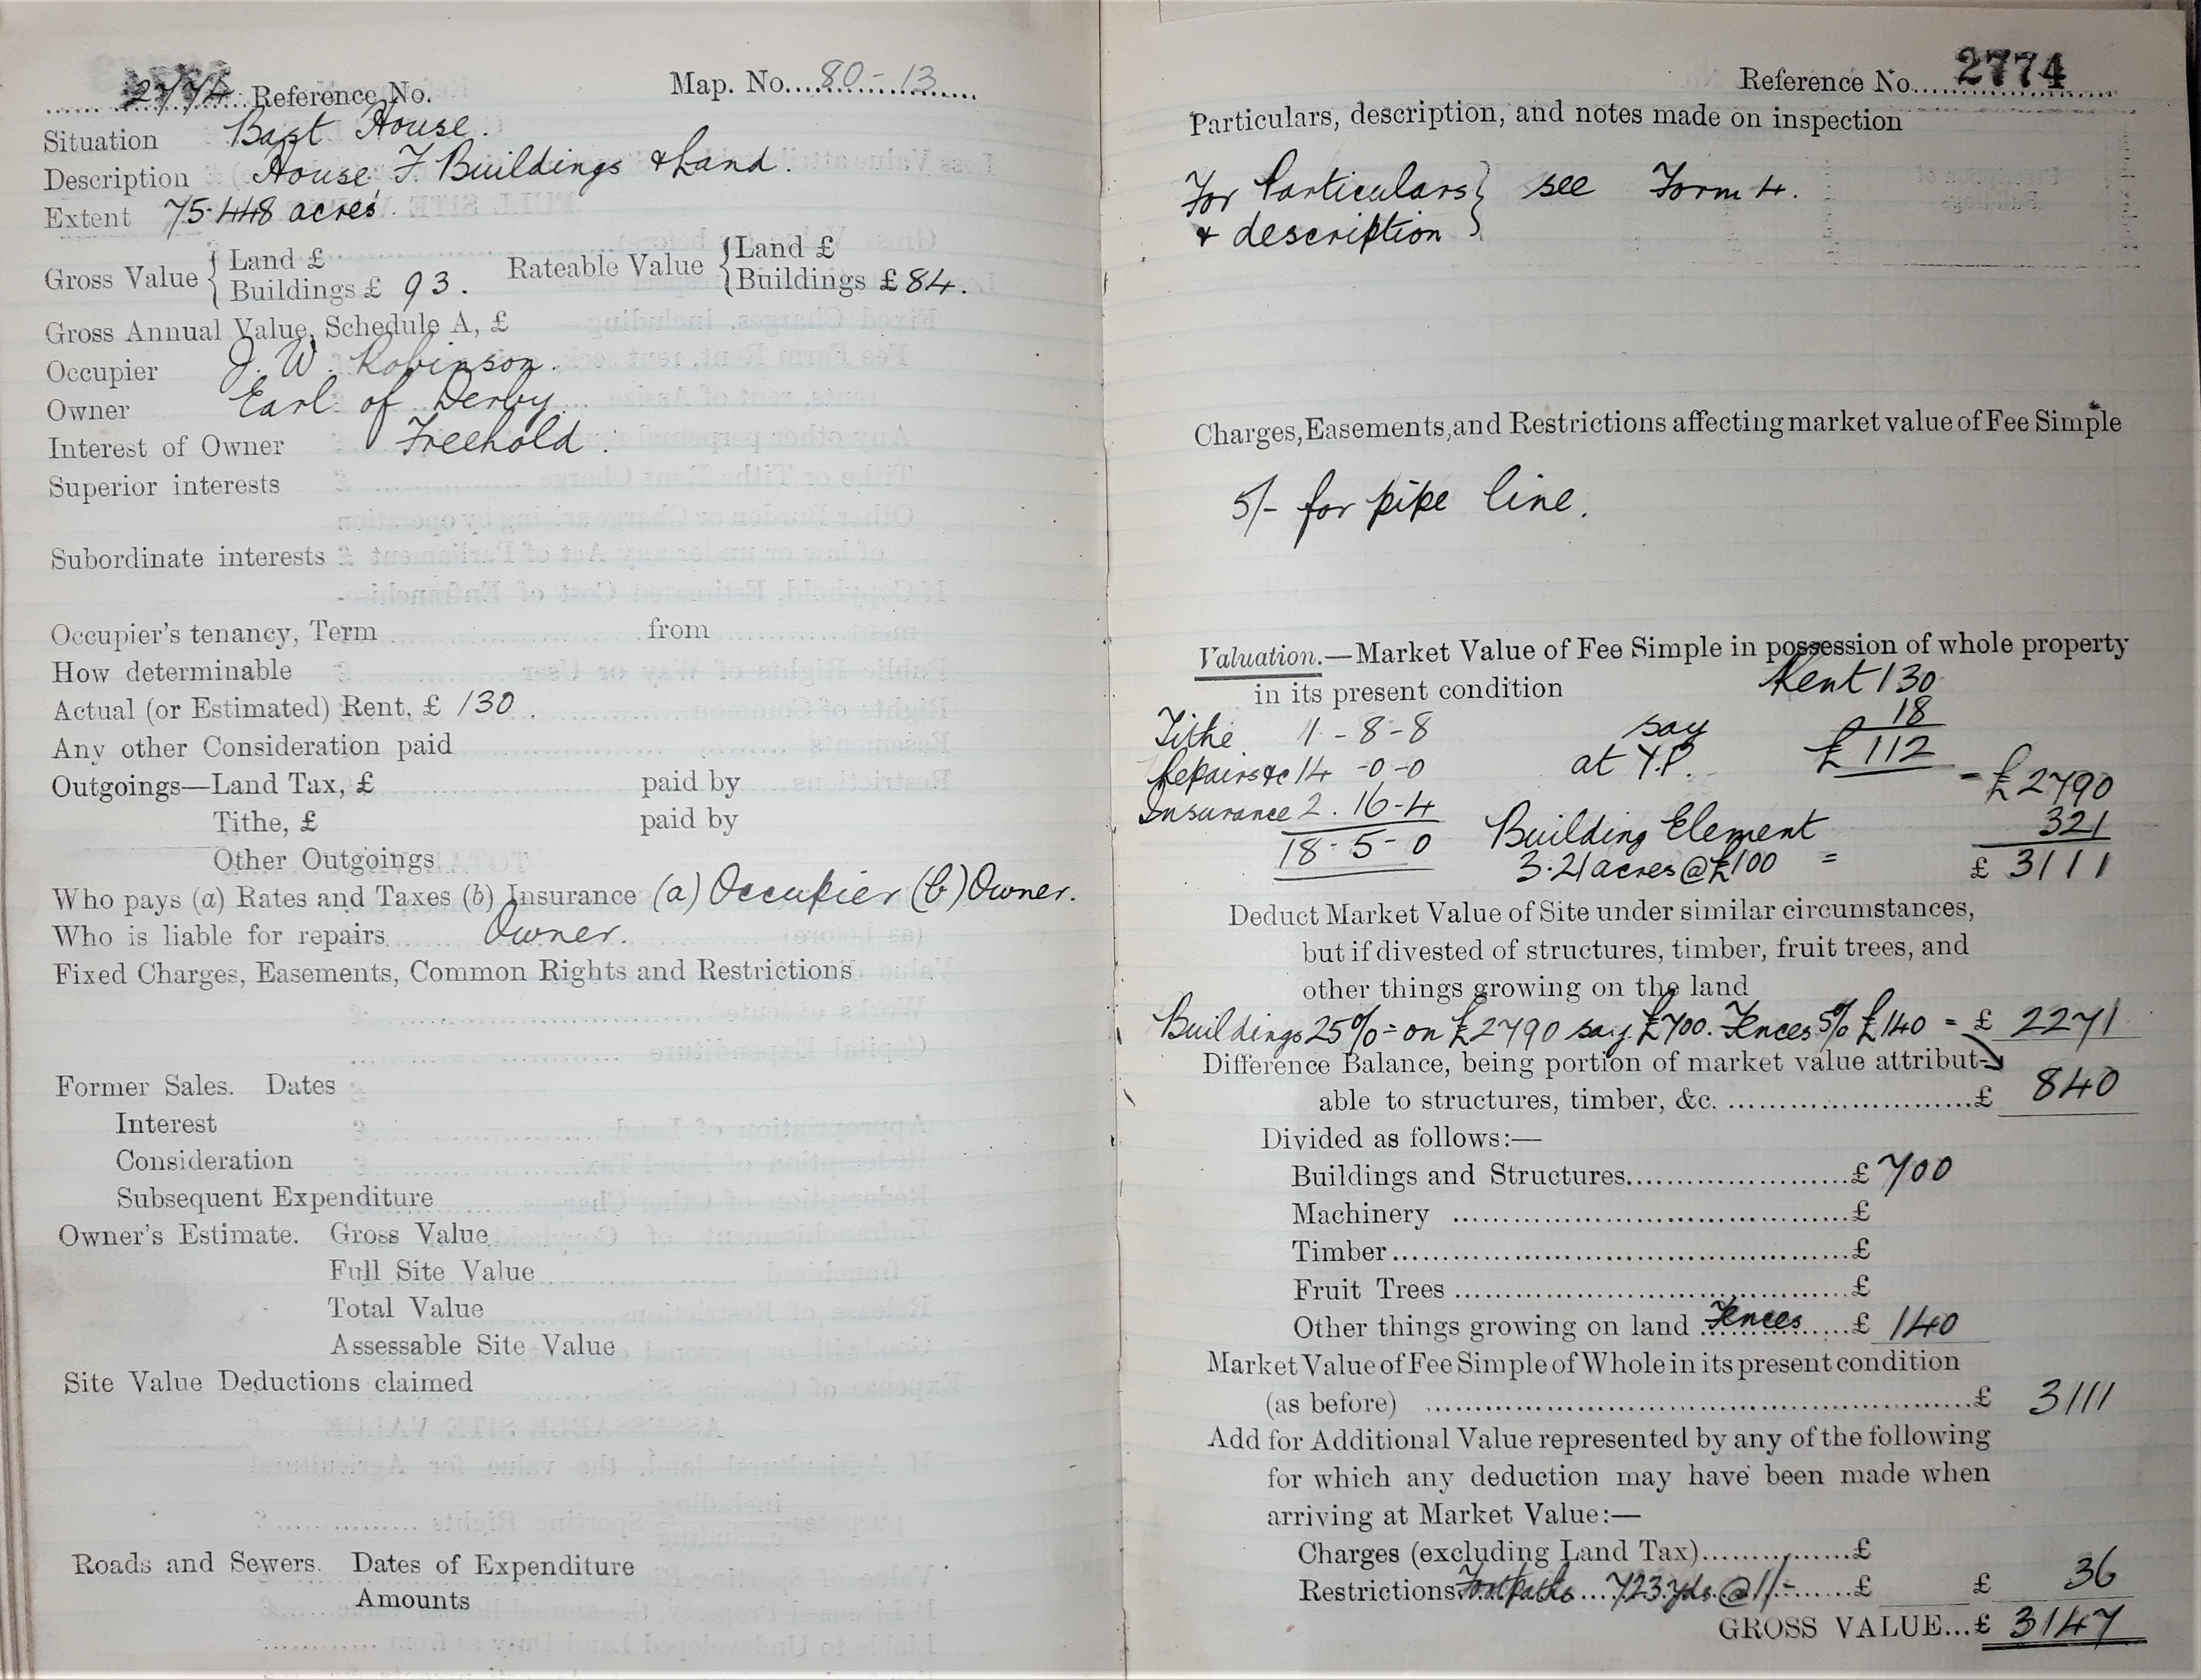 2774 Reference No. Map. No. 80-13
Situation House.
Description House, F. Buildings & Land.
Extent 75.448 acres.
Gross Value { Land £
Buildings £ 93. Rateable Value { Land £
Buildings £ 84.
Gross Annual Value, Schedule A, £
Occupier J. W. Robinson.
Owner Earl of Derby.
Interest of Owner Freehold.
Superior interests
Subordinate interests
Occupier's tenancy, Term from
How determinable
Actual (or Estimated) Rent, £ 130.
Any other Consideration paid
Outgoings—Land Tax, £ paid by
Tithe, £ paid by
Other Outgoings
Who pays (a) Rates and Taxes (b) Insurance (a) Occupier (b) Owner.
Who is liable for repairs Owner.
Fixed Charges, Easements, Common Rights and Restrictions
Former Sales. Dates
Interest
Consideration
Subsequent Expenditure
Owner's Estimate. Gross Value
Full Site Value
Total Value
Assessable Site Value
Site Value Deductions claimed
Roads and Sewers. Dates of Expenditure
Amounts
Reference No. 2774
Particulars, description, and notes made on inspection
For Particulars } see Form 4.
& description }
Charges, Easements, and Restrictions affecting market value of Fee Simple
5/- for pipe line.
Valuation.—Market Value of Fee Simple in possession of whole property
in its present condition Rent 130
Tithe 1-8-8 say 18
Repairs &c 14-0-0 at Y.P. £112 = £2790
Insurance 2.16-4 Building Element 321
18-5-0 3.21 acres @ £100 = £ 3111
Deduct Market Value of Site under similar circumstances,
but if divested of structures, timber, fruit trees, and
other things growing on the land
Buildings 25% = on £2790 say £700. Fences 5% £140 = £ 2271
Difference Balance, being portion of market value attribut-
able to structures, timber, &c. £ 840
Divided as follows:—
Buildings and Structures £ 700
Machinery £
Timber £
Fruit Trees £
Other things growing on land Fences £ 140
Market Value of Fee Simple of Whole in its present condition
(as before) £ 3111
Add for Additional Value represented by any of the following
for which any deduction may have been made when
arriving at Market Value:—
Charges (excluding Land Tax) £
Restrictions Footpaths 723 yds. @ 1/- £ £ 36
GROSS VALUE...£ 3147